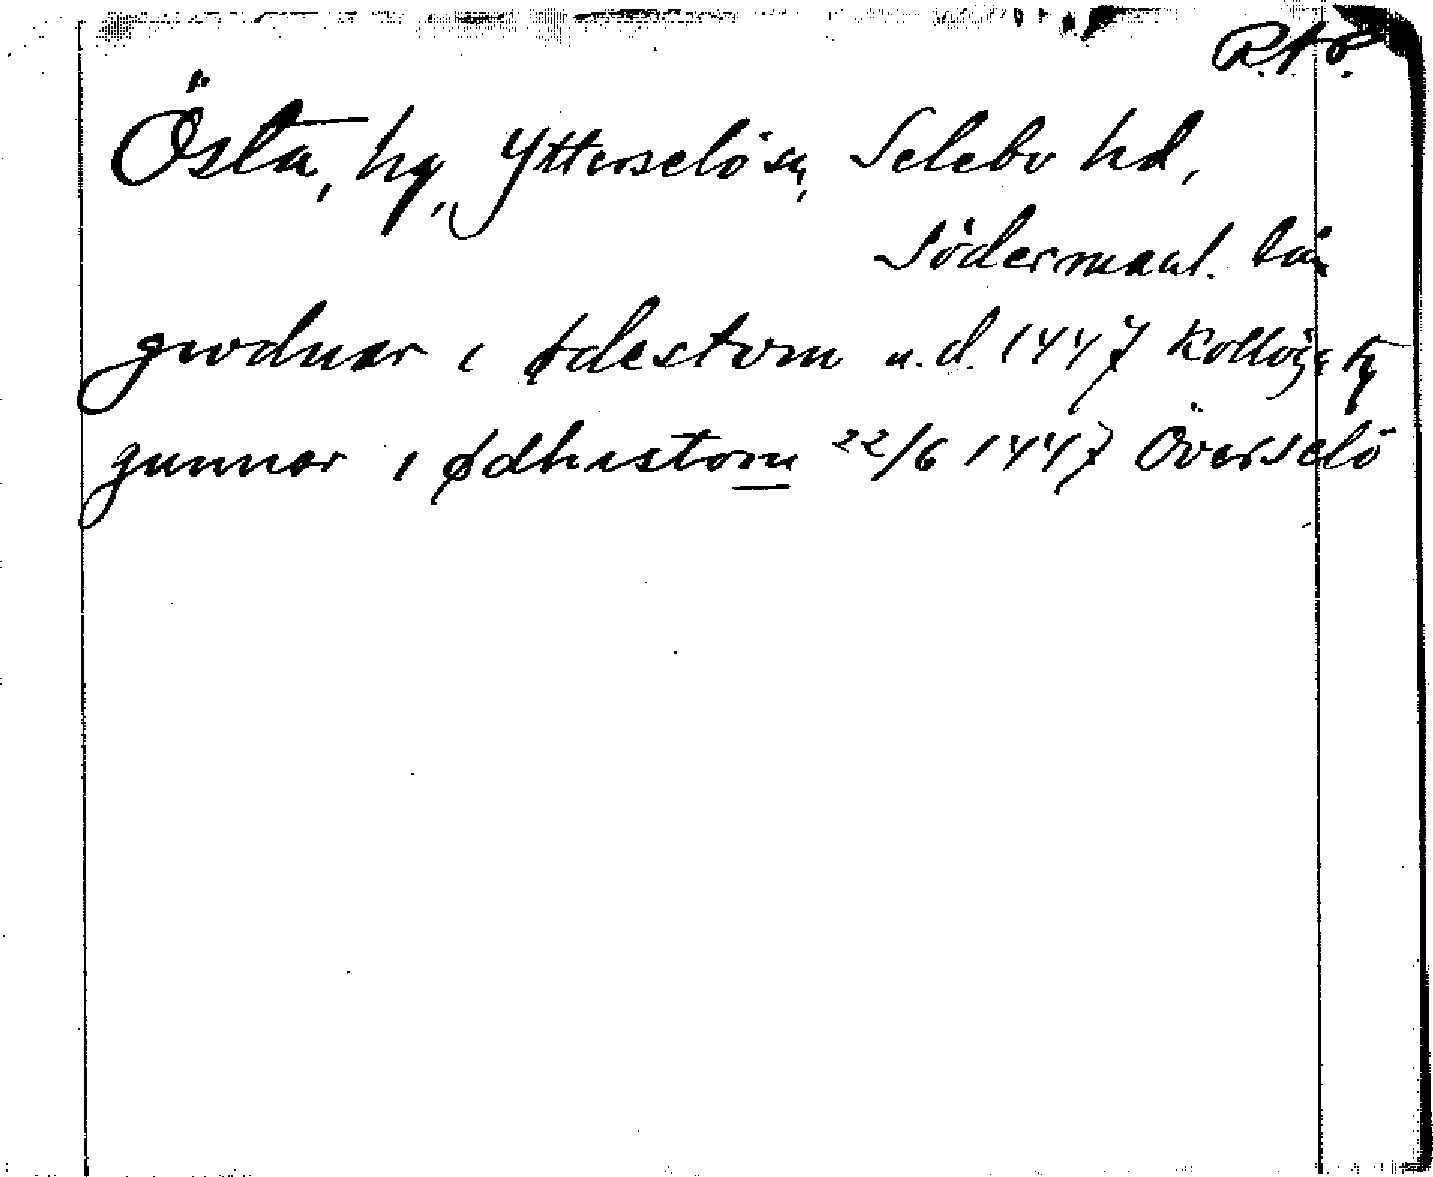 R.A.ö.
Östa, hg, Ytterselö sn, Selebo hd,
Södermanl. län
gwdnar i ødestom u.d. 1447 Kolloja
gunnar i ødhistom 22/6 1447 Överselö